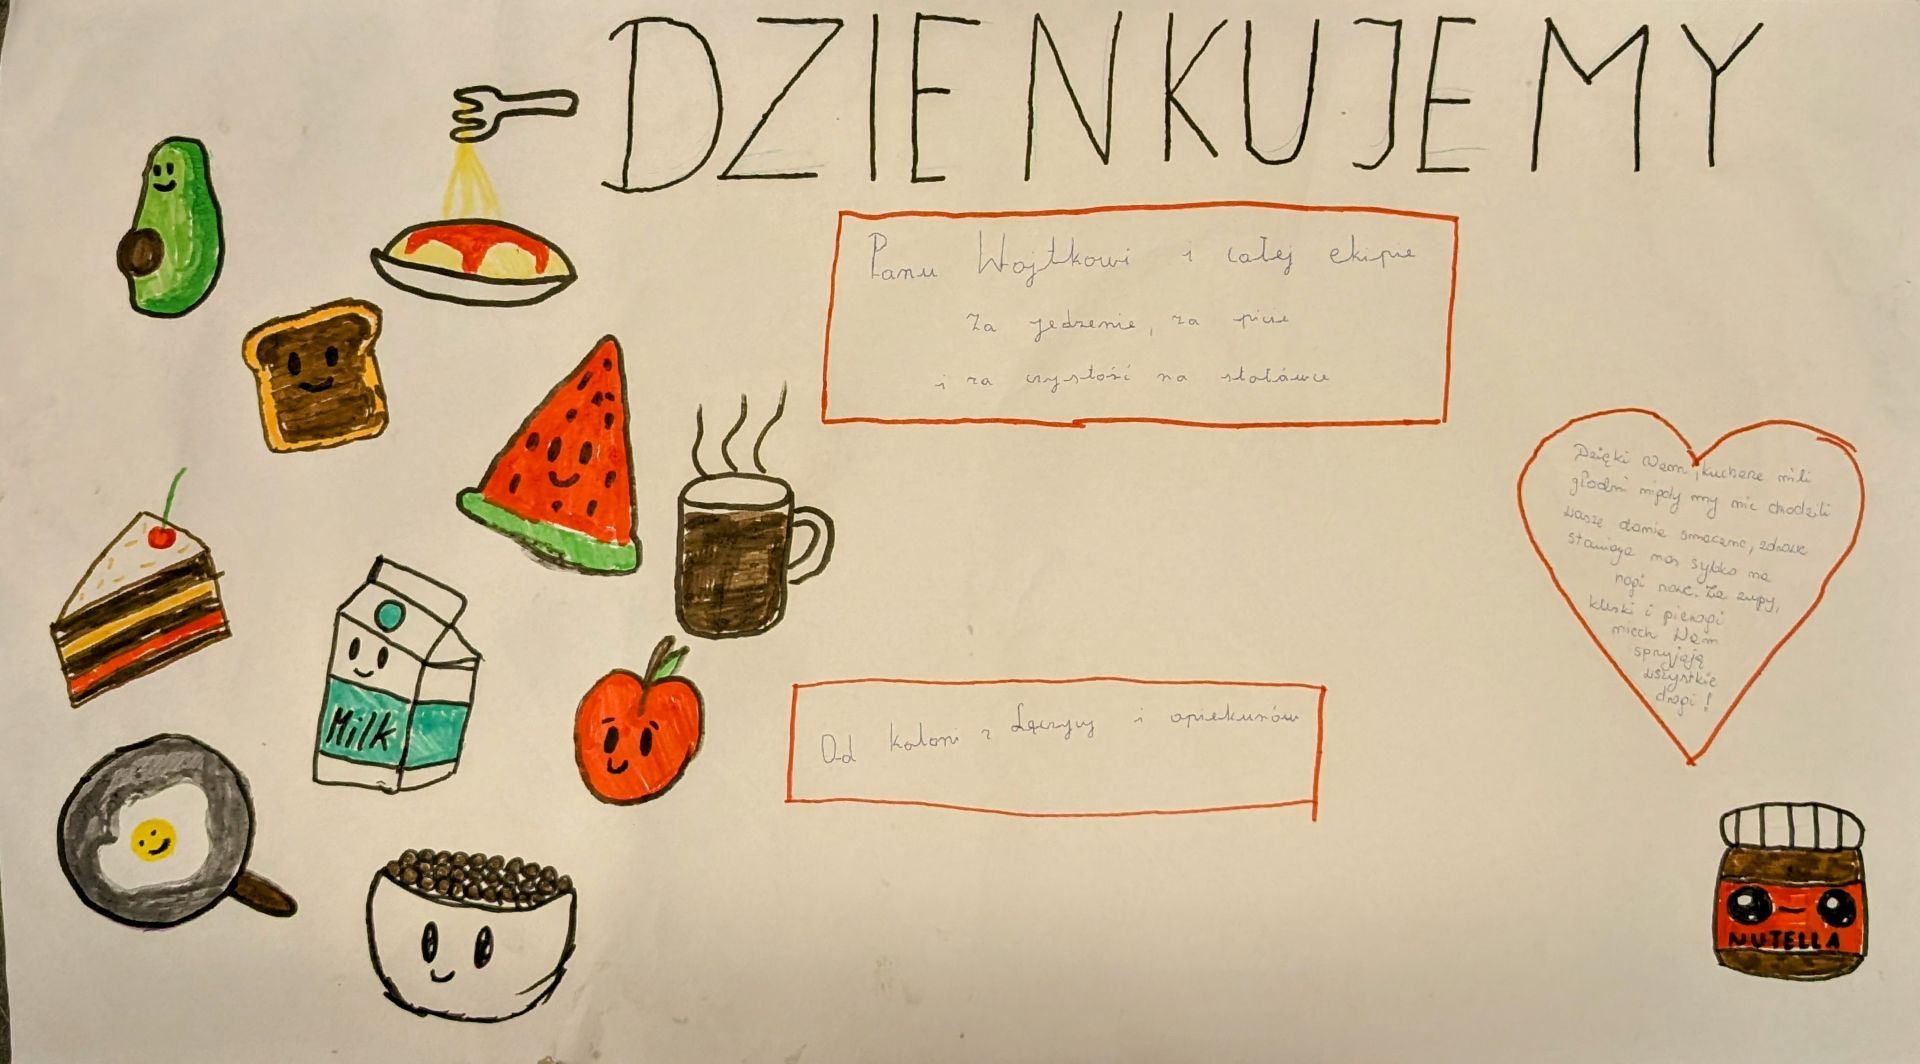 DZIENKUJEMY
Panu Wojtkowi i całej ekipie
Za jedzenie, za picie
i za czystość na stołówce
Dzięki Wam, kucharze mili
głodni nigdy my nie chodzili
Wasze danie smaczne, zdrowe
stawiają nas sybko na
nogi nowe. Za zupy,
kluski i pierogi
niech Wam
spryjają
wszystkie
drogi!
Od koloni z Łęczycy i opiekunów
Milk
NUTELLA